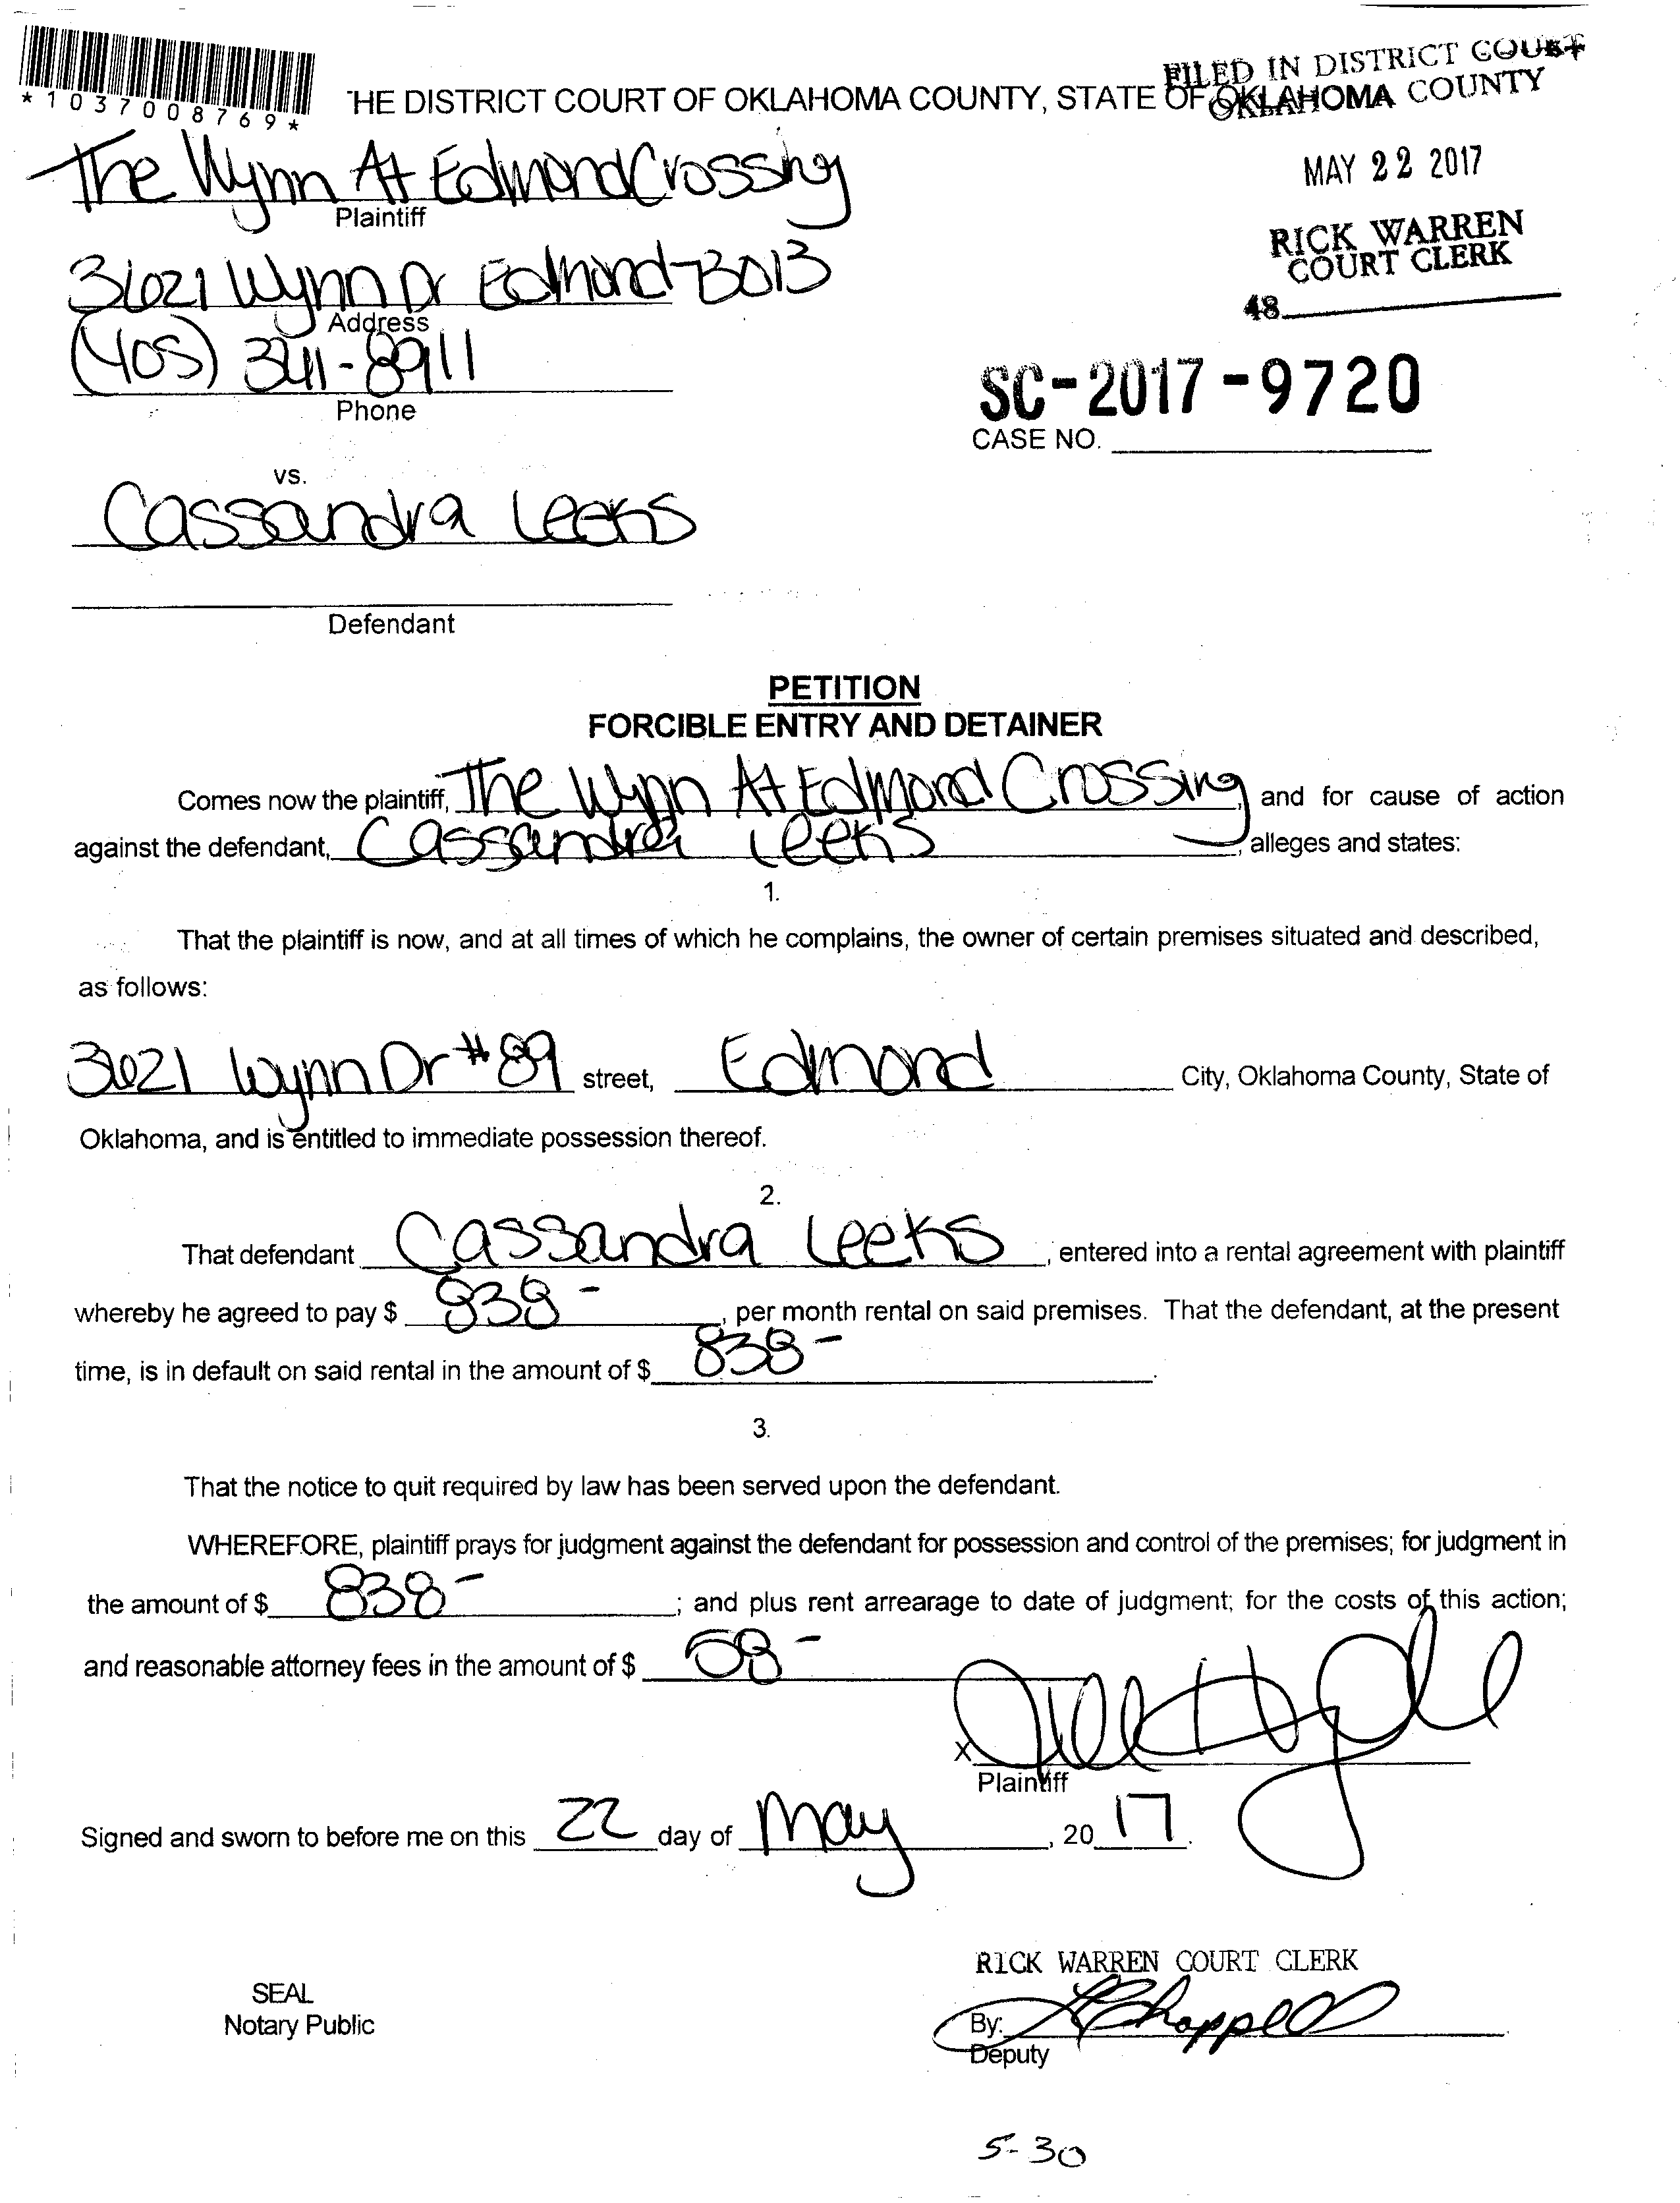 *1037008769*
THE DISTRICT COURT OF OKLAHOMA COUNTY, STATE OF OKLAHOMA
FILED IN DISTRICT COURT
OKLAHOMA COUNTY
MAY 22 2017
RICK WARREN
COURT CLERK
48
The Wynn At Edmond Crossing
Plaintiff
3621 Wynn Dr Edmond 73013
Address
(405) 341-8911
Phone
SC-2017-9720
CASE NO.
vs.
Cassandra Leeks
Defendant
PETITION
FORCIBLE ENTRY AND DETAINER
Comes now the plaintiff, The Wynn At Edmond Crossing, and for cause of action
against the defendant, Cassandra Leeks, alleges and states:
1.
That the plaintiff is now, and at all times of which he complains, the owner of certain premises situated and described,
as follows:
3621 Wynn Dr #89 street, Edmond City, Oklahoma County, State of
Oklahoma, and is entitled to immediate possession thereof.
2.
That defendant Cassandra Leeks, entered into a rental agreement with plaintiff
whereby he agreed to pay $ 838-, per month rental on said premises. That the defendant, at the present
time, is in default on said rental in the amount of $ 838-.
3.
That the notice to quit required by law has been served upon the defendant.
WHEREFORE, plaintiff prays for judgment against the defendant for possession and control of the premises; for judgment in
the amount of $ 838-; and plus rent arrearage to date of judgment; for the costs of this action;
and reasonable attorney fees in the amount of $ 58-
X
Plaintiff
Signed and sworn to before me on this 22 day of May, 2017.
RICK WARREN COURT CLERK
SEAL
Notary Public
By: Chappell
Deputy
5-30